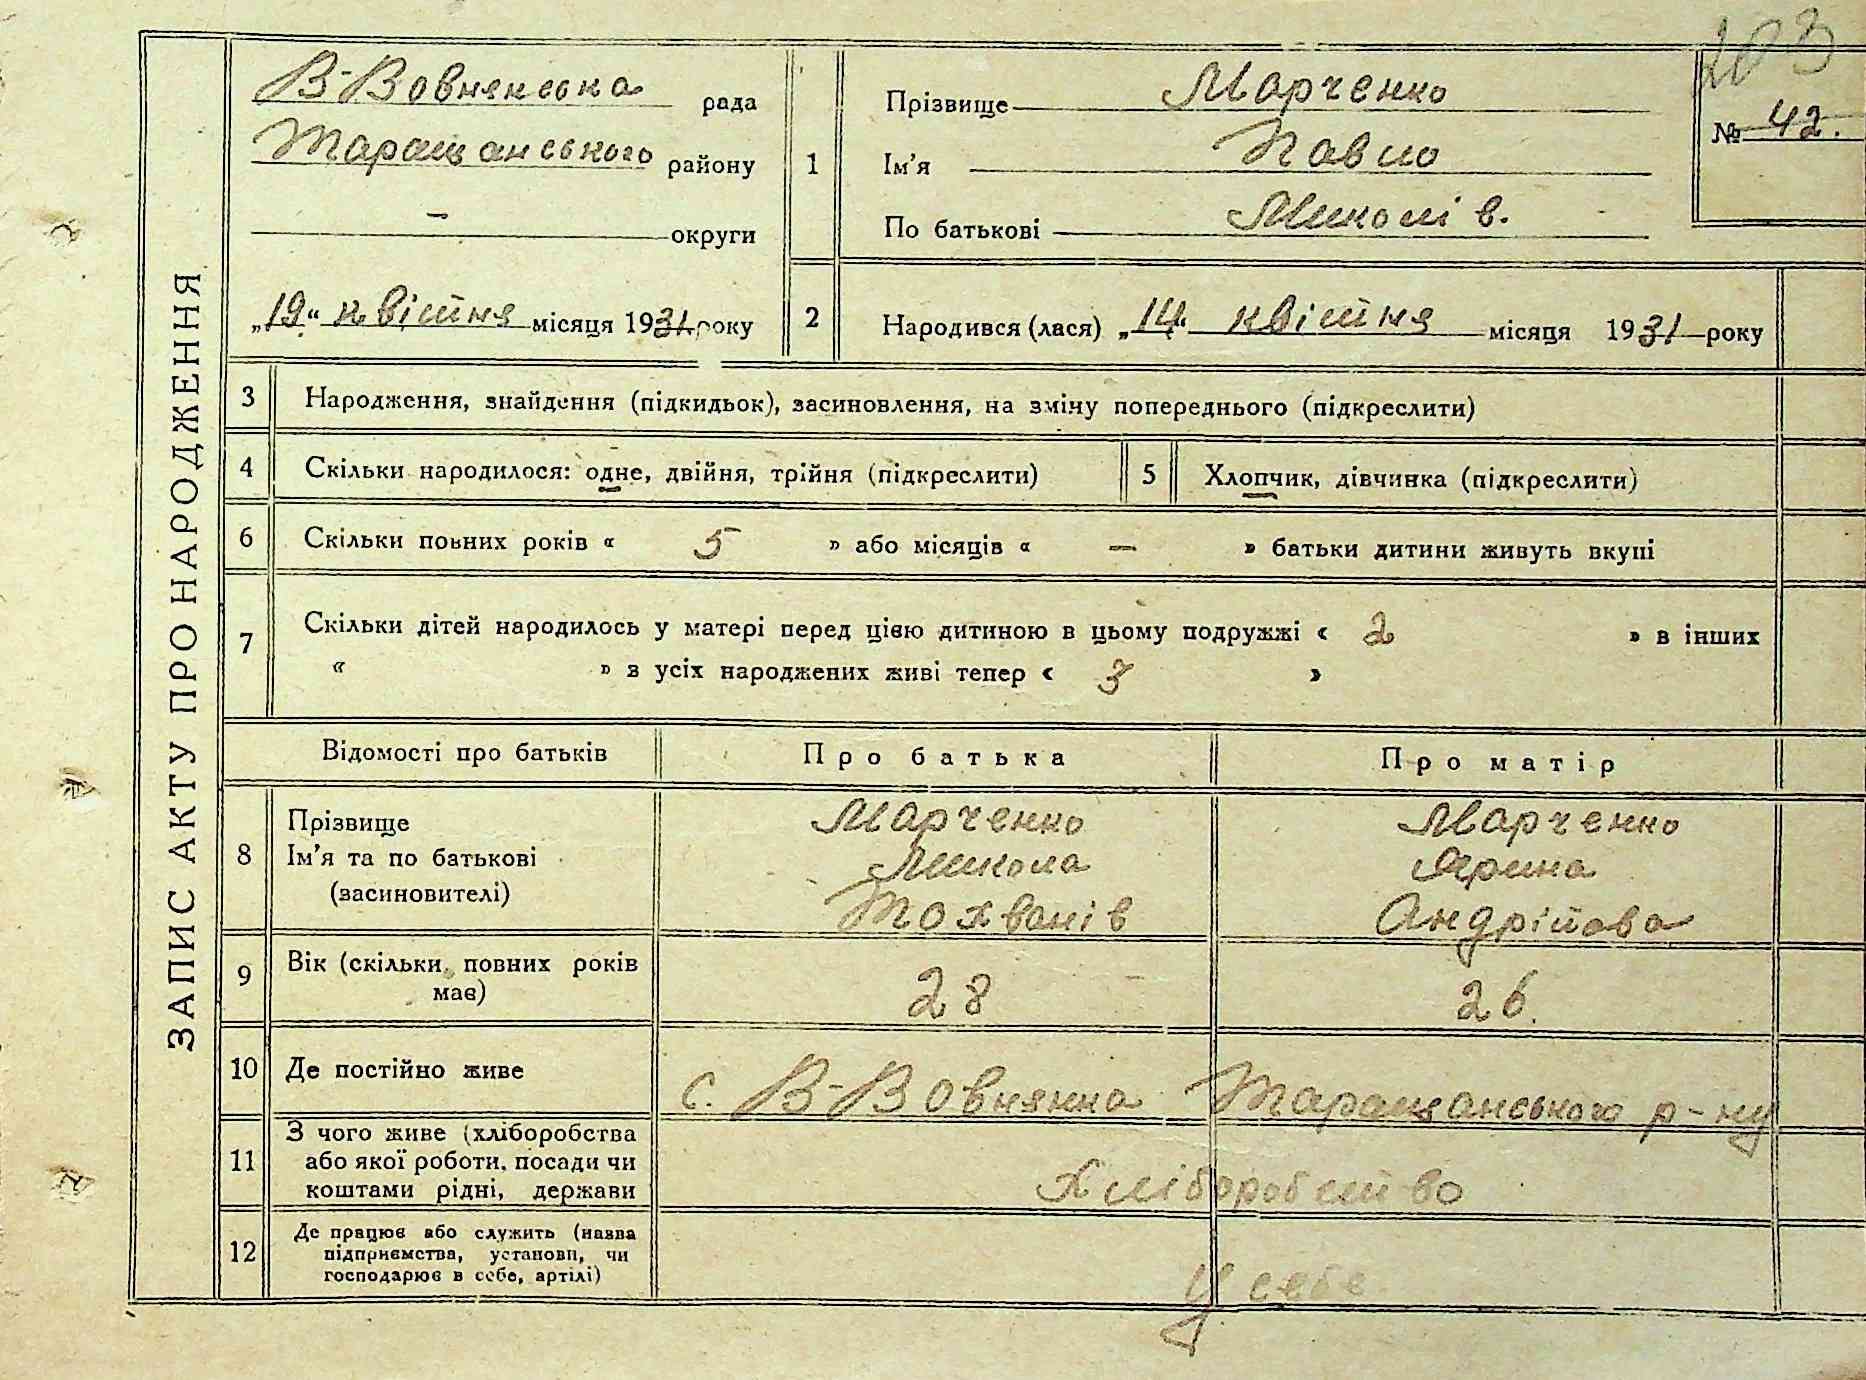 203
ЗАПИС АКТУ ПРО НАРОДЖЕННЯ
В-Вовнянська рада
Таращанського району
— округи
„19“ квітня місяця 1931 року
№ 42.
1 Прізвище Марченко
Ім'я Павло
По батькові Миколів.
2 Народився (лася) „14“ квітня місяця 1931 року
3 Народження, знайдення (підкидьок), засиновлення, на зміну попереднього (підкреслити)
4 Скільки народилося: одне, двійня, трійня (підкреслити) 5 Хлопчик, дівчинка (підкреслити)
6 Скільки повних років « 5 » або місяців « — » батьки дитини живуть вкупі
7 Скільки дітей народилось у матері перед цією дитиною в цьому подружжі « 2 » в інших
« » з усіх народжених живі тепер « 3 »
Відомості про батьків Про батька Про матір
8 Прізвище Марченко Марченко
Ім'я та по батькові Микола Ярина
(засиновителі) Тохванів Андрійова
9 Вік (скільки повних років має) 28 26
10 Де постійно живе с. В-Вовнянка Таращанського р-ну
11 З чого живе (хліборобства
або якої роботи, посади чи
коштами рідні, держави Хліборобство
12 Де працює або служить (назва
підприємства, установи, чи
господарює в себе, артілі) У себе